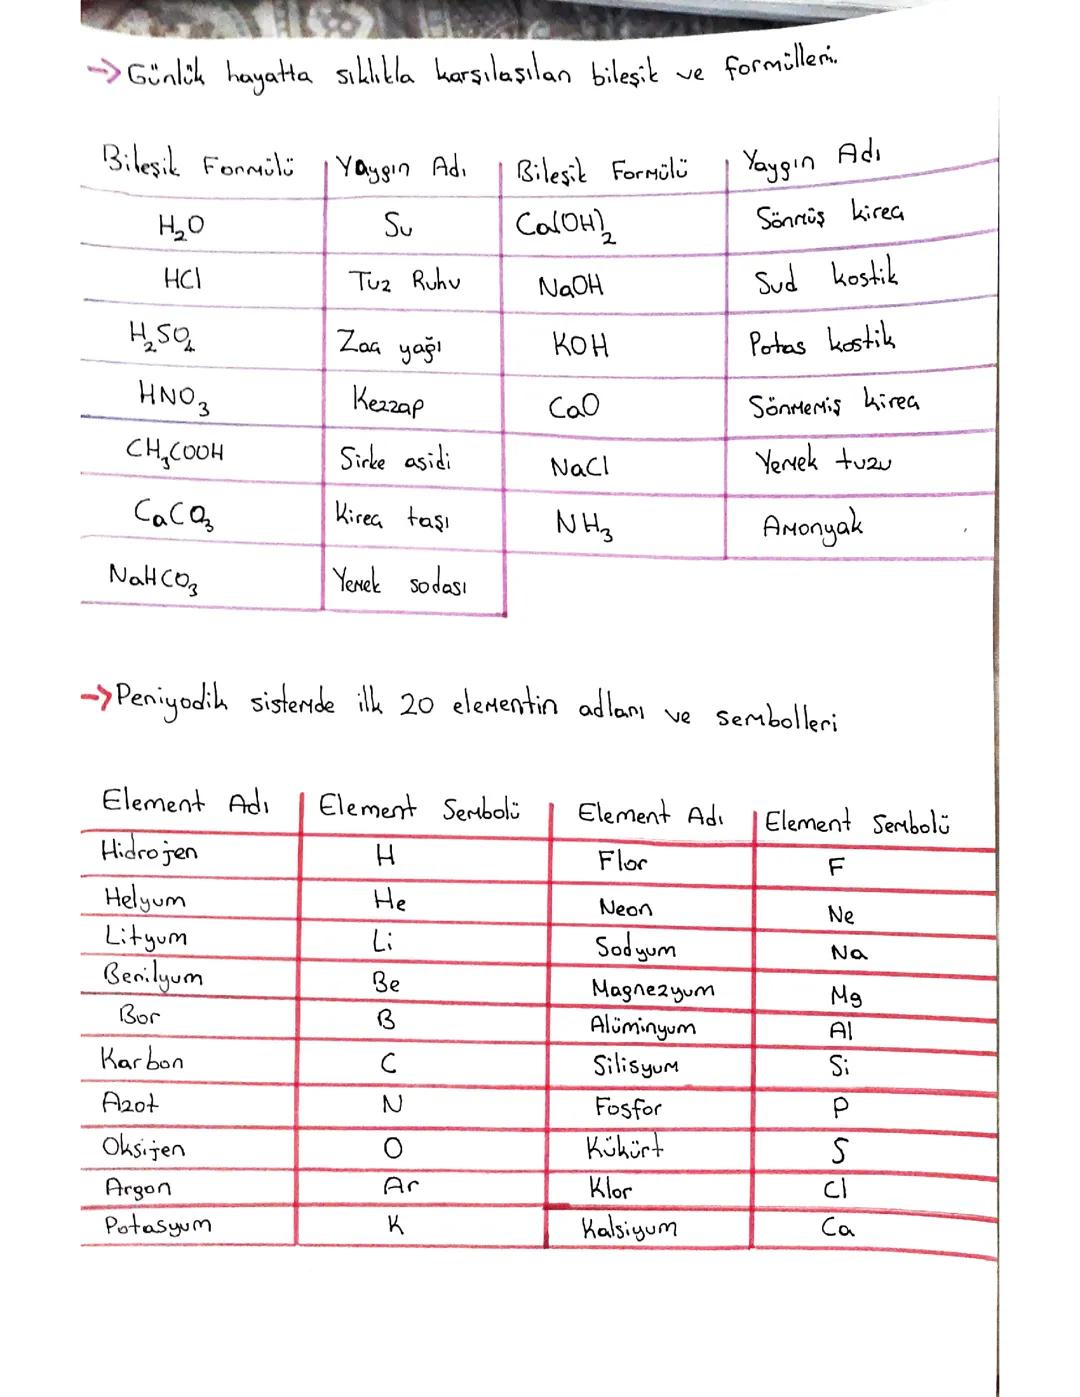 →Günlük hayatta sıklıkla karşılaşılan bileşik ve formülleri.
Bileşik Formülü Yaygın Adı Bileşik Formülü Yaygın Adı
H₂O Su Ca(OH)₂ Sönmüş kireç
HCl Tuz Ruhu NaOH Sud kostik
H₂SO₄ Zaç yağı KOH Potas kostik
HNO₃ Kezzap CaO Sönmemiş kireç
CH₃COOH Sirke asidi NaCl Yemek tuzu
CaCO₃ Kireç taşı NH₃ Amonyak
NaHCO₃ Yemek sodası
→Periyodik sistemde ilk 20 elementin adları ve sembolleri
Element Adı Element Sembolü Element Adı Element Sembolü
Hidrojen H Flor F
Helyum He Neon Ne
Lityum Li Sodyum Na
Berilyum Be Magnezyum Mg
Bor B Alüminyum Al
Karbon C Silisyum Si
Azot N Fosfor P
Oksijen O Kükürt S
Argon Ar Klor Cl
Potasyum K Kalsiyum Ca